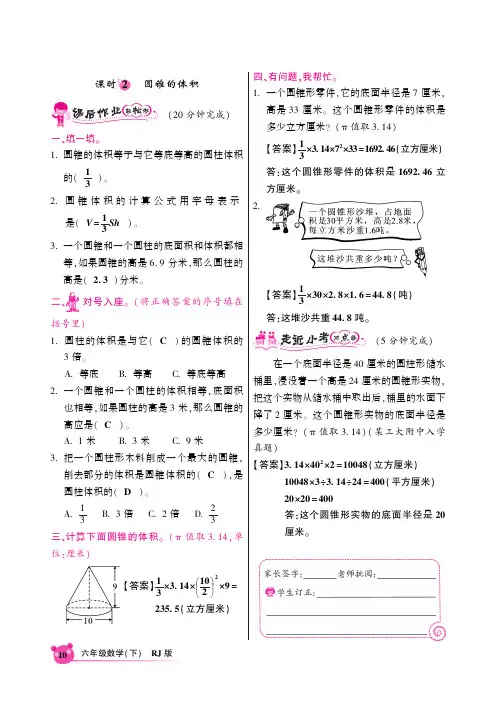 课时 2 圆锥的体积
课后作业 (20 分钟完成)
一、填一填。
1. 圆锥的体积等于与它等底等高的圆柱体积
的( 1/3 )。
2. 圆锥体积的计算公式用字母表示
是( V=1/3Sh )。
3. 一个圆锥和一个圆柱的底面积和体积都相
等,如果圆锥的高是 6.9 分米,那么圆柱的
高是( 2.3 )分米。
二、对号入座。(将正确答案的序号填在
括号里)
1. 圆柱的体积是与它( C )的圆锥体积的
3 倍。
A. 等底 B. 等高 C. 等底等高
2. 一个圆锥和一个圆柱的体积相等,底面积
也相等,如果圆柱的高是 3 米,那么圆锥的
高应是( C )。
A. 1 米 B. 3 米 C. 9 米
3. 把一个圆柱形木料削成一个最大的圆锥,
削去部分的体积是圆锥体积的( C ),是
圆柱体积的( D )。
A. 1/3 B. 3 倍 C. 2 倍 D. 2/3
三、计算下面圆锥的体积。(π 值取 3.14,单
位:厘米)
9
10
【答案】1/3×3.14×(10/2)²×9=
235.5(立方厘米)
四、有问题,我帮忙。
1. 一个圆锥形零件,它的底面半径是 7 厘米,
高是 33 厘米。这个圆锥形零件的体积是
多少立方厘米? (π 值取 3.14)
【答案】1/3×3.14×7²×33=1692.46(立方厘米)
答:这个圆锥形零件的体积是 1692.46 立
方厘米。
2.
一个圆锥形沙堆,占地面
积是30平方米,高是2.8米,
每立方米沙重1.6吨。
这堆沙共重多少吨?
【答案】1/3×30×2.8×1.6=44.8(吨)
答:这堆沙共重 44.8 吨。
走近小考 (5 分钟完成)
在一个底面半径是 40 厘米的圆柱形储水
桶里,浸没着一个高是 24 厘米的圆锥形实物,
把这个实物从储水桶中取出后,桶里的水面下
降了 2 厘米。这个圆锥形实物的底面半径是
多少厘米? (π 值取 3.14)(某工大附中入学
真题)
【答案】3.14×40²×2=10048(立方厘米)
10048×3÷3.14÷24=400(平方厘米)
20×20=400
答:这个圆锥形实物的底面半径是 20
厘米。
家长签字: 老师批阅:
学生订正:
10 六年级数学(下) RJ 版